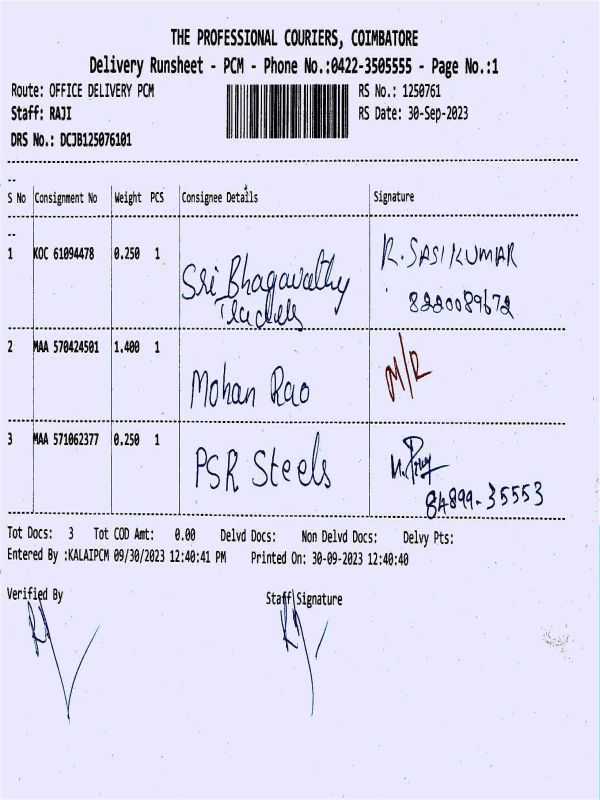 THE PROFESSIONAL COURIERS, COIMBATORE
Delivery Runsheet - PCM - Phone No.:0422-3505555 - Page No.:1
Route: OFFICE DELIVERY PCM RS No.: 1250761
Staff: RAJI RS Date: 30-Sep-2023
DRS No.: DCJB125076101
--
S No Consignment No Weight PCS Consignee Details Signature
--
1 KOC 61094478 0.250 1 Sri Bhagavathy Traders R. SASIKUMAR
8220089672
2 MAA 570424501 1.400 1 Mohan Rao M/R
3 MAA 571062377 0.250 1 PSR Steels
84899-35553
Tot Docs: 3 Tot COD Amt: 0.00 Delvd Docs: Non Delvd Docs: Delvy Pts:
Entered By :KALAIPCM 09/30/2023 12:40:41 PM Printed On: 30-09-2023 12:40:40
Verified By Staff Signature